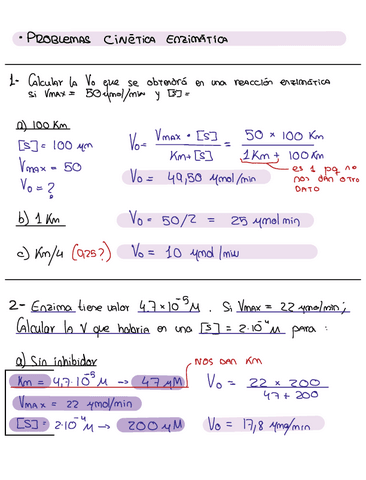 • PROBLEMAS CINÉTICA ENZIMÁTICA
1- Calcular la V₀ que se obtendrá en una reacción enzimática
si Vmax = 50 μmol/min y [S]=
a) 100 Km
[S] = 100 μm
Vmax = 50
V₀ = ?
V₀ = Vmax · [S] / Km + [S] = 50 × 100 Km / 1 Km + 100 Km
es 1 pq no
nos dan otro
DATO
V₀ = 49,50 μmol/min
b) 1 Km
V₀ = 50/2 = 25 μmol min
c) Km/4 (0,25?)
V₀ = 10 μmol/min
2- Enzima tiene valor 4,7×10⁻⁵ M. Si Vmax = 22 μmol/min;
Calcular la V que habría en una [S] = 2·10⁻⁴ M para:
a) Sin inhibidor
NOS DAN KM
Km = 4,7·10⁻⁵ M → 47 μM
Vmax = 22 μmol/min
[S] = 2·10⁻⁴ M → 200 μM
V₀ = 22 × 200 / 47 + 200
V₀ = 17,8 μmg/min